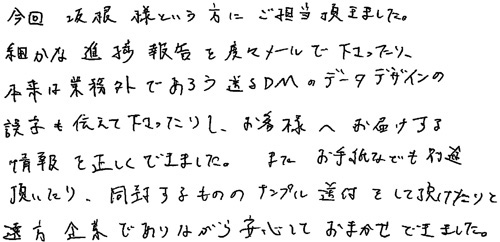 今回 坂根 様という方にご担当頂きました。
細かな進捗報告を度々メールで下さったり、
本来は業務外であろう送るDMのデータデザインの
誤字も伝えて下さったりし、お客様へお届けする
情報を正しくできました。 また お手紙なども別途
頂いたり、同封するもののサンプル送付をして頂けたりと
遠方企業でありながら安心しておまかせできました。